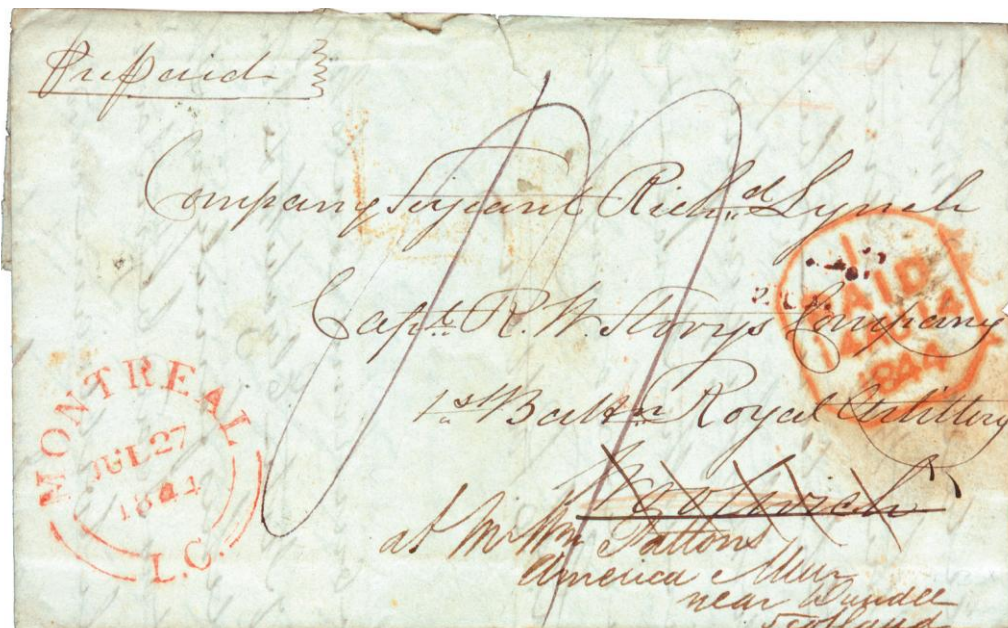 PrePaid
Company Serjeant Rich.d Lynch
Capt. R. W. Storys Company
1st Battn Royal Artillery
Woolwich
at Mr Wm Pattons
America Muir
near Dundee
Scotland
MONTREAL
JUL 27
1844
L.C.
PAID
1844